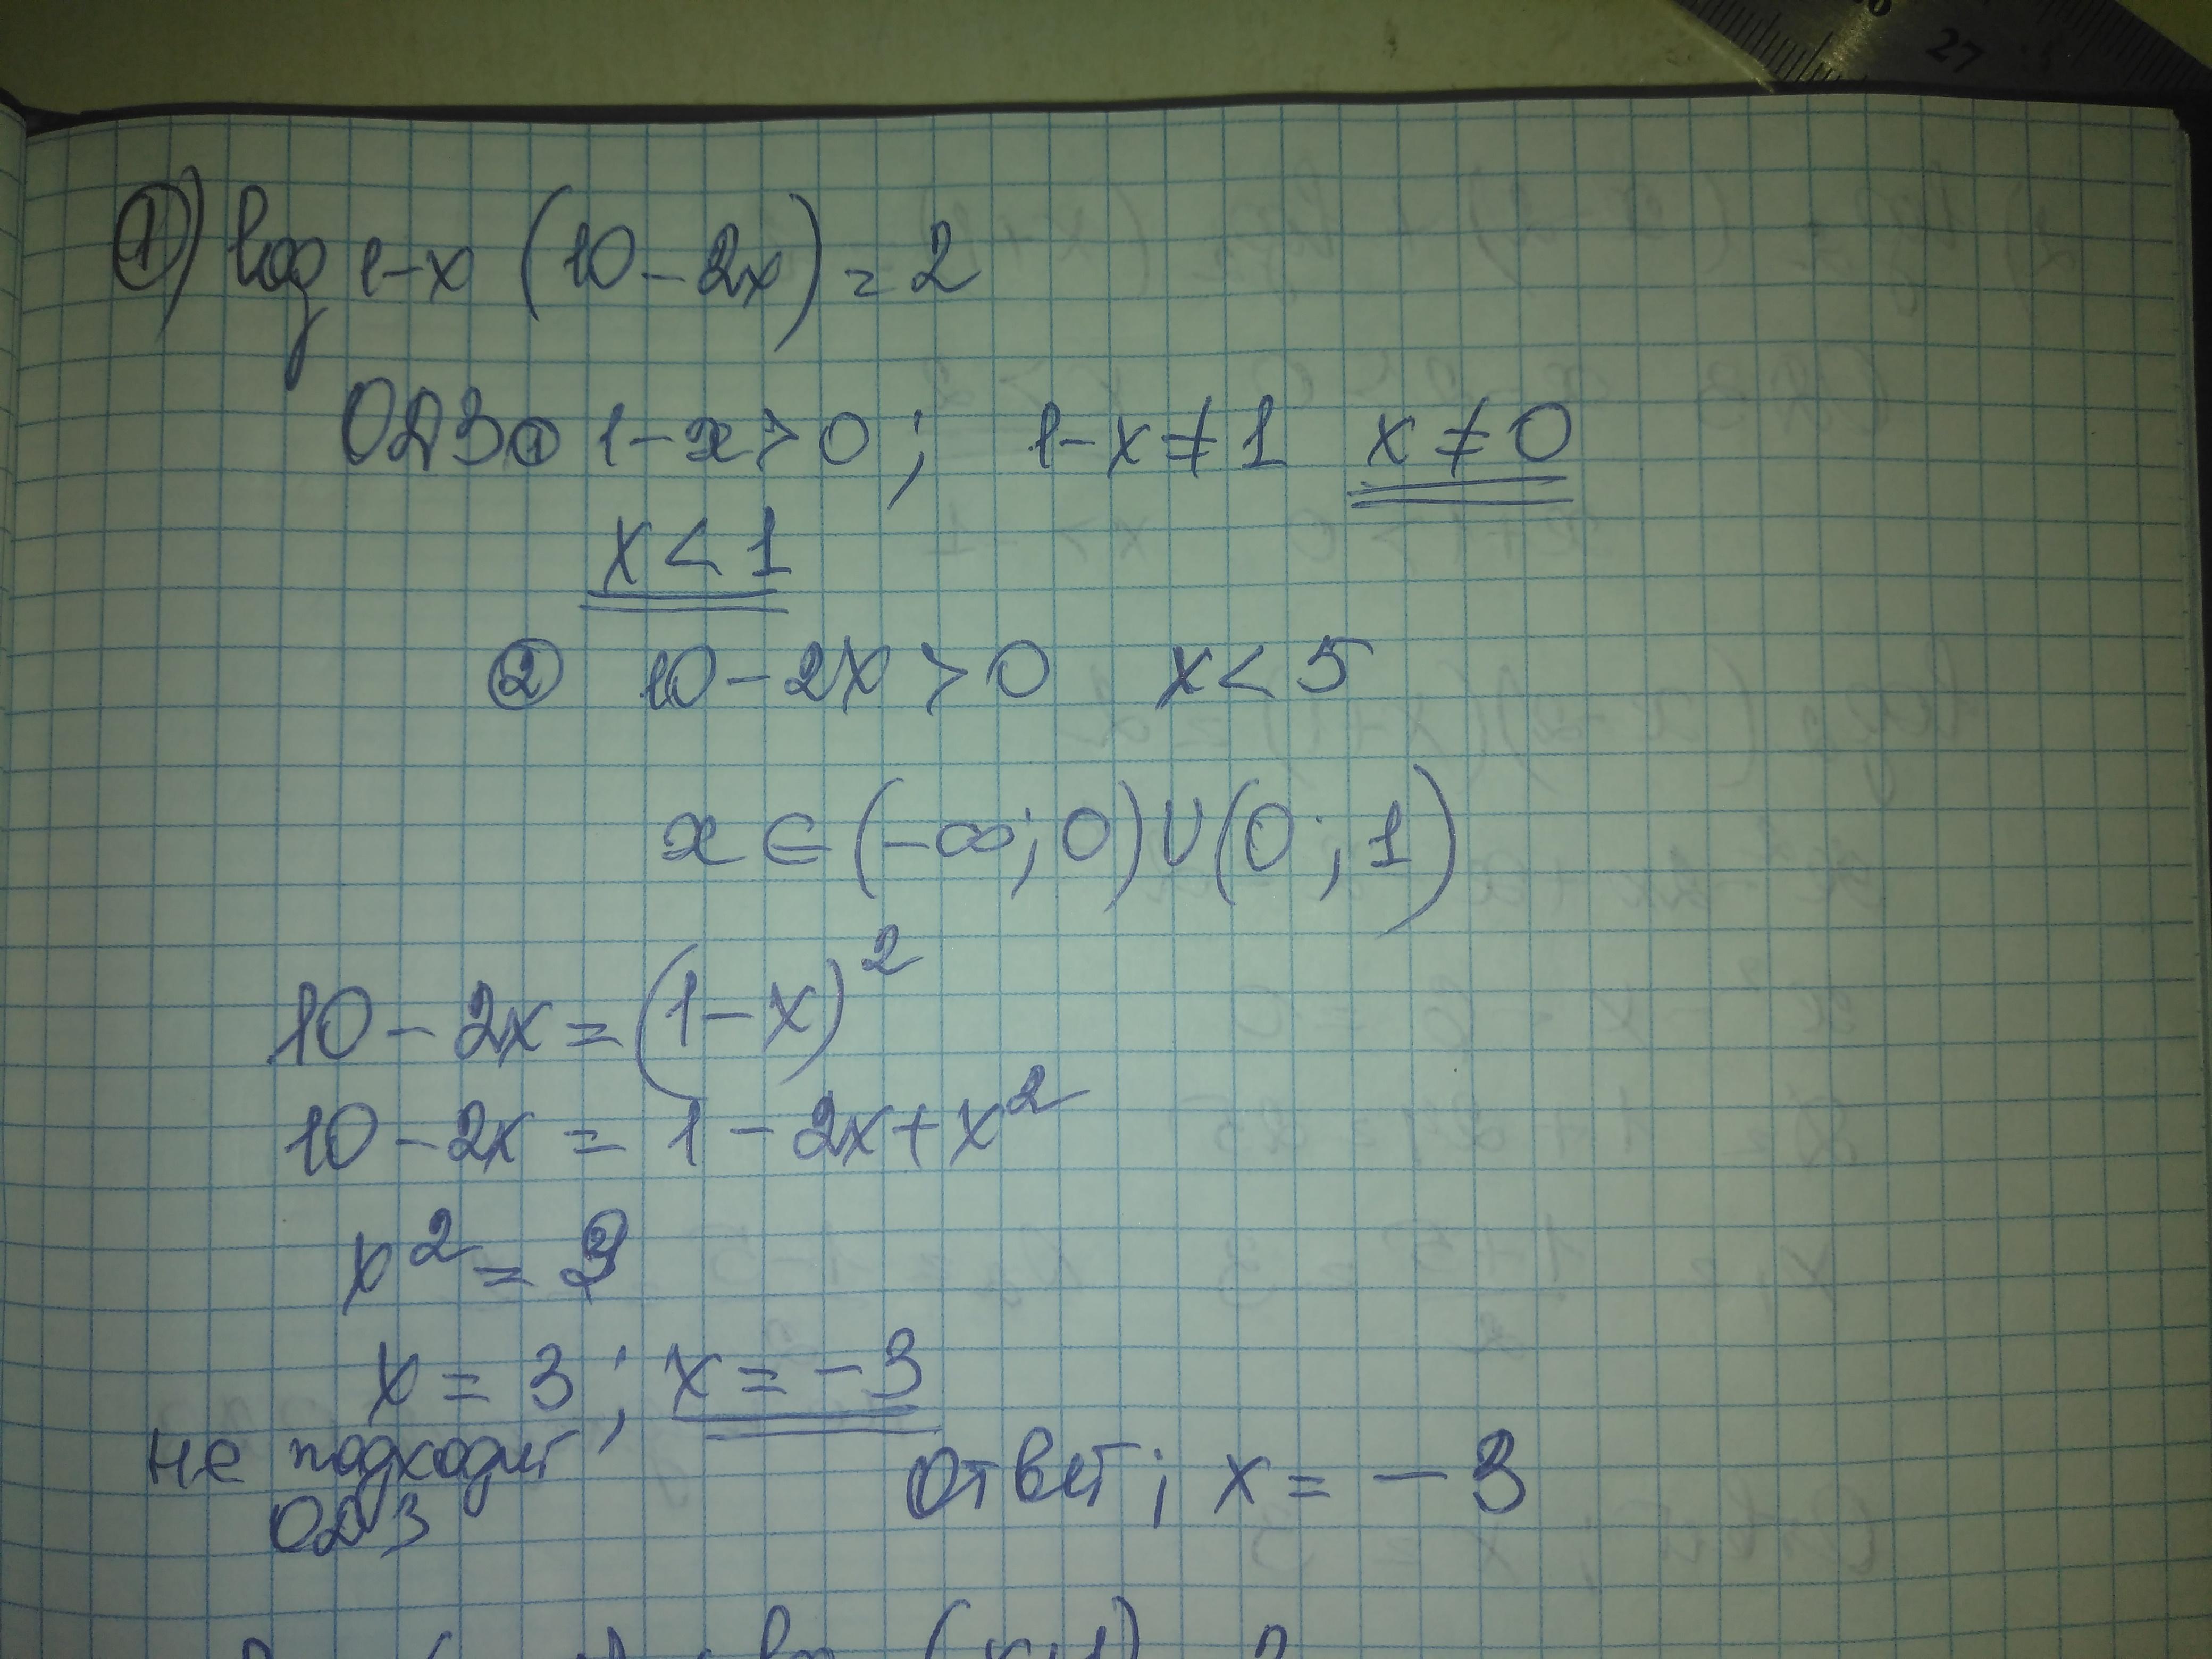 27
①) log 1-x (10-2x) = 2
ОДЗ ① 1-x>0; 1-x≠1 x≠0
x<1
② 10-2x>0 x<5
x∈(-∞;0)∪(0;1)
10-2x=(1-x)²
10-2x=1-2x+x²
x²=9
x=3; x=-3
не подходит
ОДЗ
Ответ; x=-3